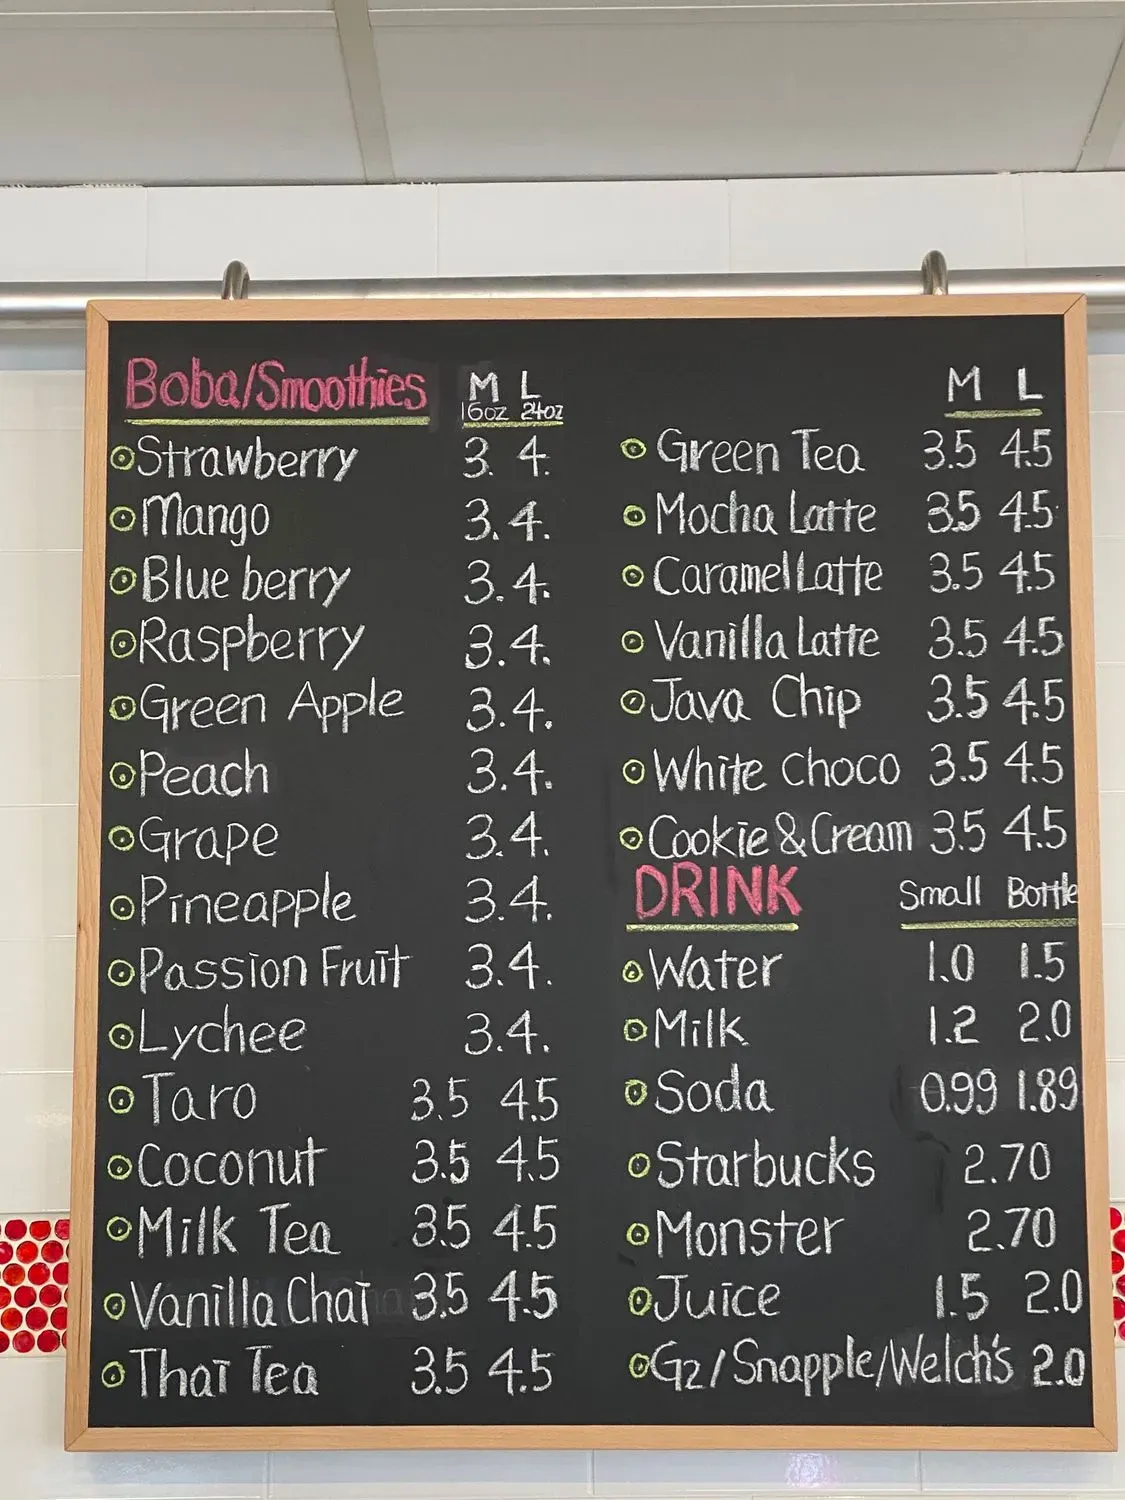 Boba/Smoothies M L
16oz 24oz
Strawberry 3. 4.
Mango 3. 4.
Blue berry 3. 4.
Raspberry 3. 4.
Green Apple 3. 4.
Peach 3. 4.
Grape 3. 4.
Pineapple 3. 4.
Passion Fruit 3. 4.
Lychee 3. 4.
Taro 3.5 4.5
Coconut 3.5 4.5
Milk Tea 3.5 4.5
Vanilla Chai 3.5 4.5
Thai Tea 3.5 4.5
M L
Green Tea 3.5 4.5
Mocha Latte 3.5 4.5
Caramel Latte 3.5 4.5
Vanilla Latte 3.5 4.5
Java Chip 3.5 4.5
White Choco 3.5 4.5
Cookie & Cream 3.5 4.5
DRINK Small Bottle
Water 1.0 1.5
Milk 1.2 2.0
Soda 0.99 1.89
Starbucks 2.70
Monster 2.70
Juice 1.5 2.0
G2/Snapple/Welch's 2.0